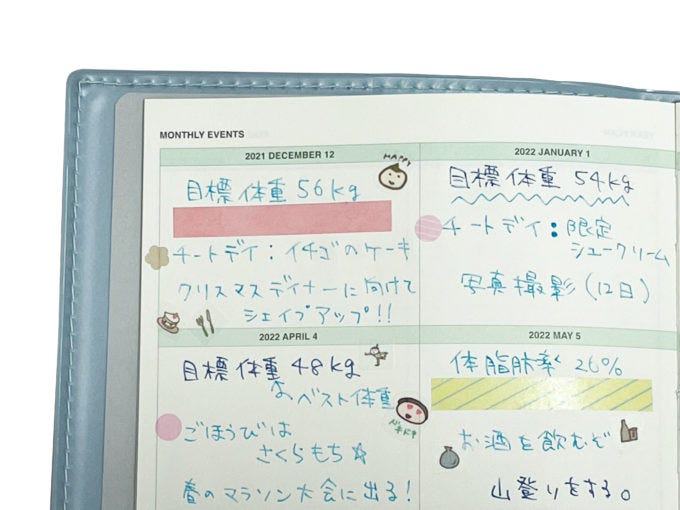 MONTHLY EVENTS
2021 DECEMBER 12
HAPPY
目標体重 56kg
チートデイ：イチゴのケーキ
クリスマスディナーに向けて
シェイプアップ!!
2022 JANUARY 1
目標体重 54kg
チートデイ：限定
シュークリーム
写真撮影（12日）
2022 APRIL 4
目標体重 48kg
ベスト体重
ごほうびは
さくらもち☆
春のマラソン大会に出る！
2022 MAY 5
体脂肪率 26%
お酒を飲むぞ
山登りをする。